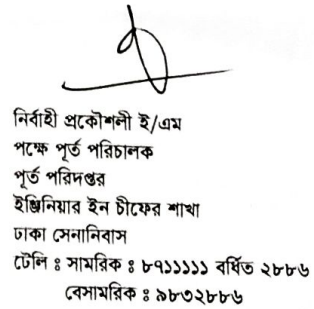 নির্বাহী প্রকৌশলী ই/এম
পক্ষে পূর্ত পরিচালক
পূর্ত পরিদপ্তর
ইঞ্জিনিয়ার ইন চীফের শাখা
ঢাকা সেনানিবাস
টেলি ঃ সামরিক ঃ ৮৭১১১১১ বর্ধিত ২৮৮৬
বেসামরিক ঃ ৯৮৩২৮৮৬